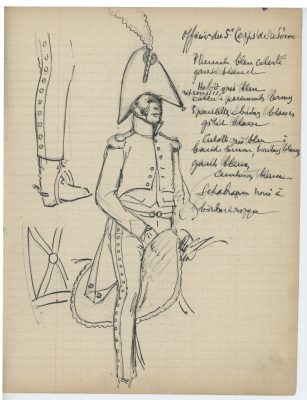 Officier du 5e Corps de
Plumet bleu céleste
ganse blanche
Habit gris bleu
retroussis
collet & parements
Epaulettes & boutons blancs
gilet blanc
Culotte gris bleu à
bande boutons blancs
gants blancs
ceinturon blanc
Schabraque noire à
bordure rouge